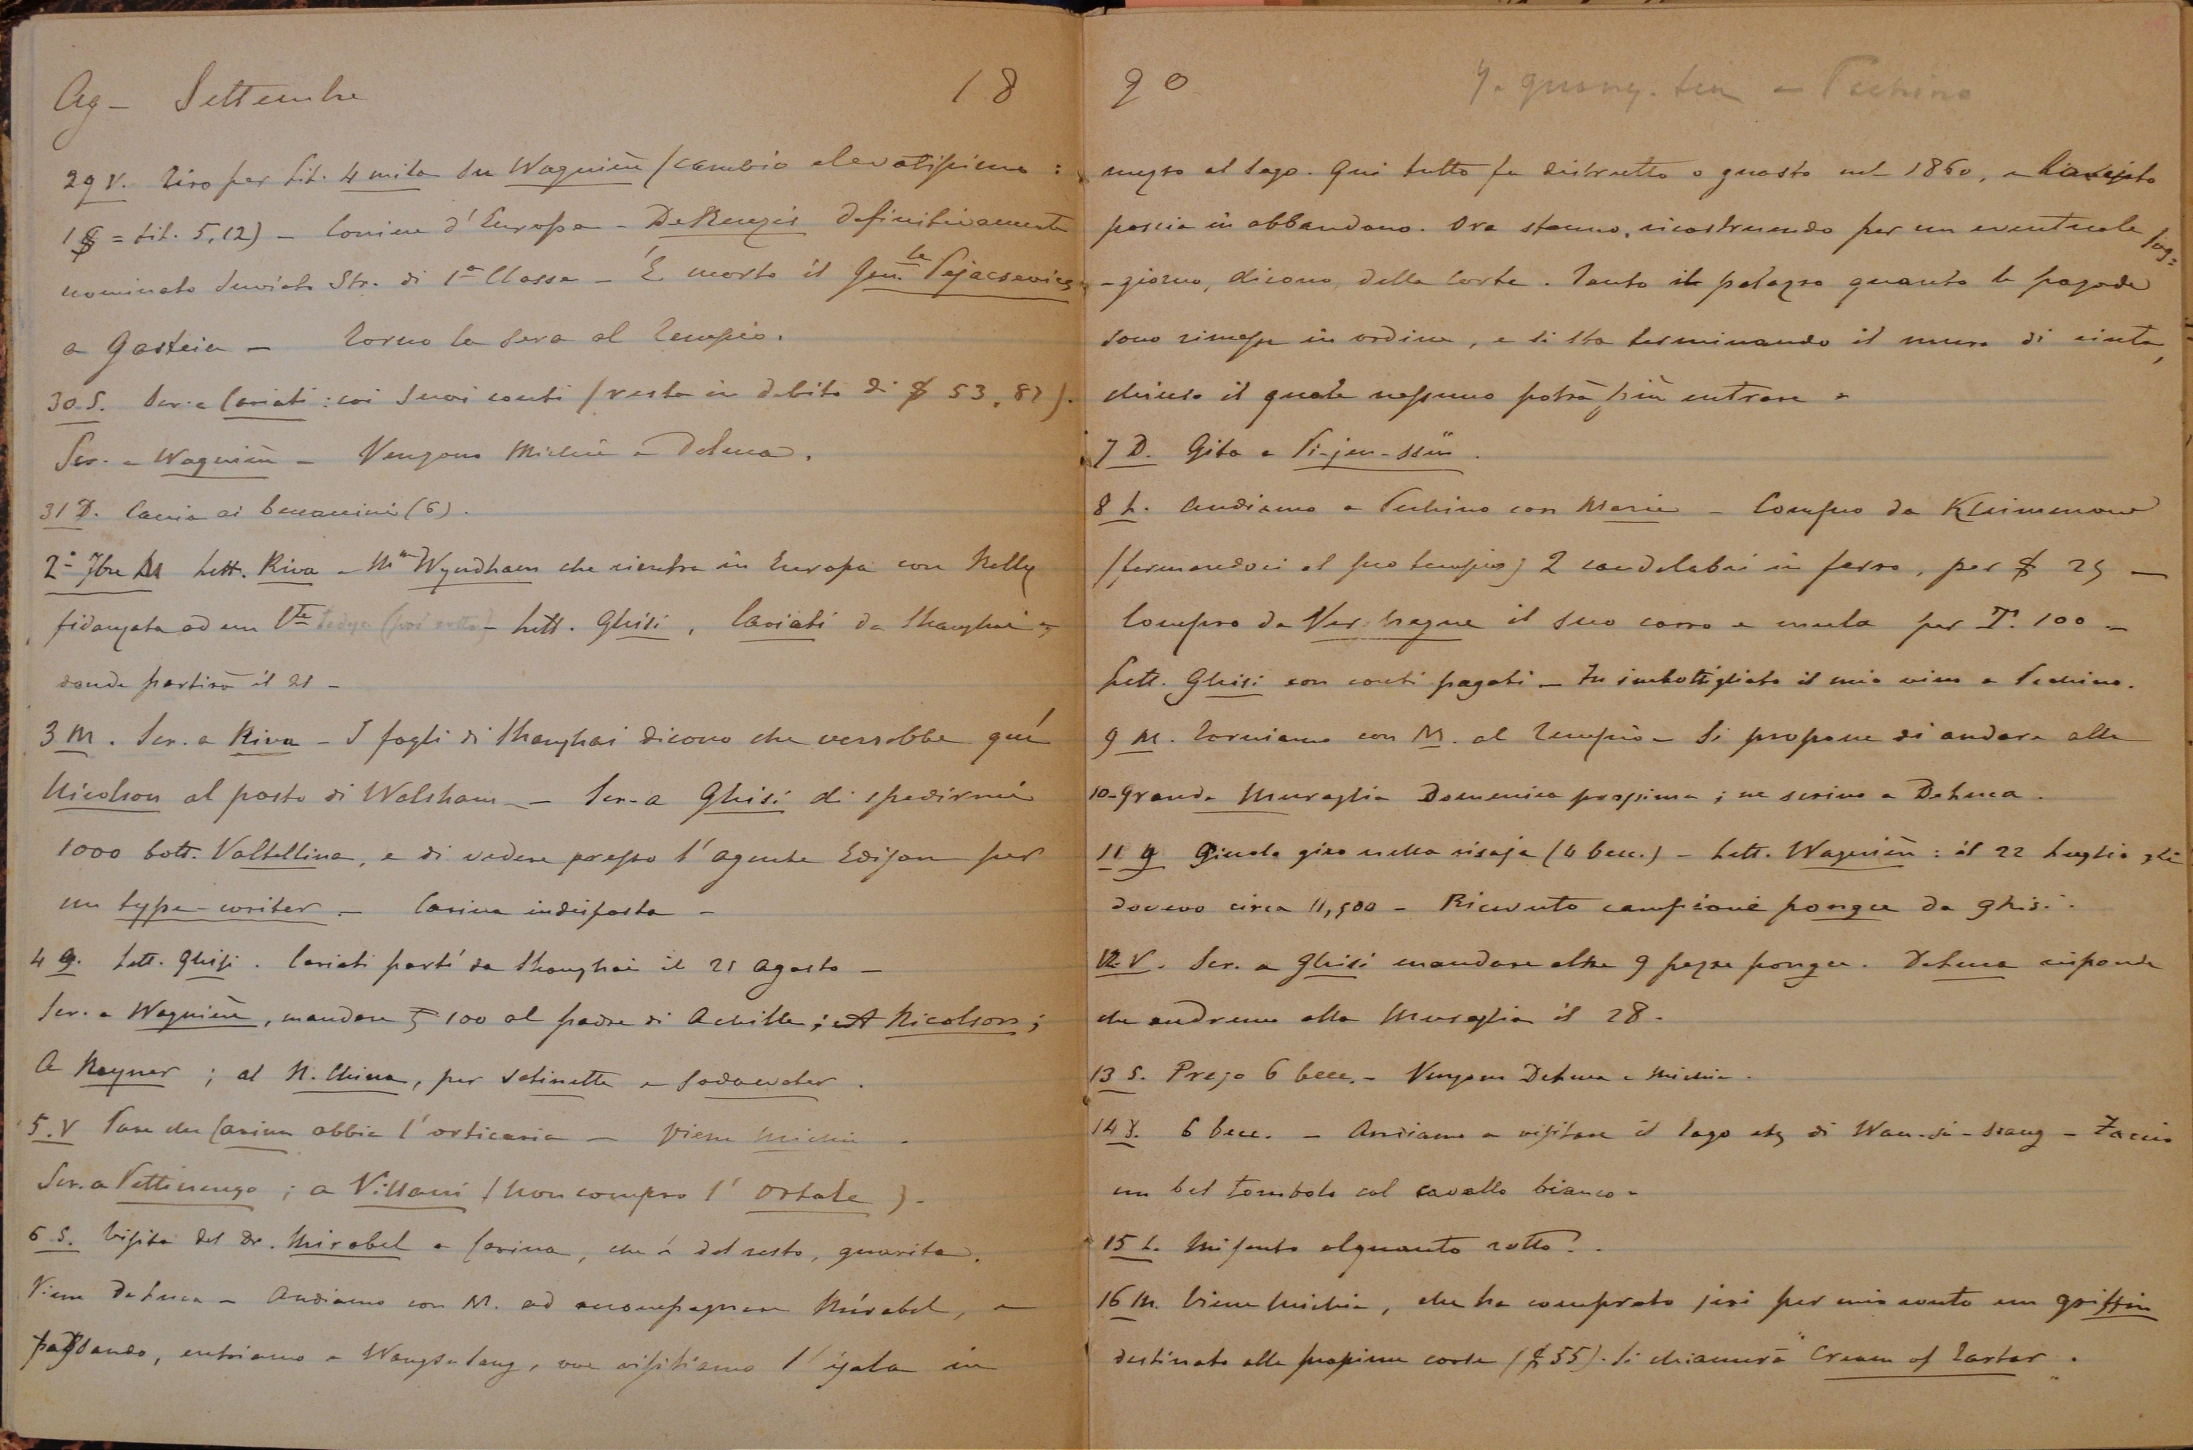 Ag - Settembre 18
29 V. Tiro per Lit. 4 mila su Wagnière (cambio elevatissimo :
1 $ = Lit. 5,12) - Corriere d'Europa - DeRenzis definitivamente
nominato Inviato Str. di 1a Classe - È morto il Gen.le Pejacsevics
a Gastein - Torno la sera al Tempio.
30 S. Scr. a Cariati : coi suoi conti (resta in debito di $ 53,87).
Scr. a Wagnière - Vengono Michie e Deluca.
31 D. Caccia ai beccaccini (6).
2 - 7bre M Lett. Riva - Mme Wyndham che rientra in Europa con Nelly
fidanzata ad un Vte - Lett. Ghisi, Cariati da Shanghai
donde partirà il 21 -
3 M. Scr. a Riva - I fogli di Shanghai dicono che verrebbe quí
Nicolson al posto di Walsham - Scr. a Ghisi di spedirmi
1000 bott. Valtellina, e di vedere presso l'agente Edison per
un type-writer - Carina indisposta -
4 G. Lett. Ghisi. Cariati partí da Shanghai il 21 Agosto -
Scr. a Wagnière, mandare 100 al padre di Achille; A Nicolson;
A Rayner; al N. China, per satinette e sodawater.
5. V Pare che Carina abbia l'orticaria - Viene Michie.
Scr. a Pettinengo; a Villani (non compro l'Ortale).
6 S. Visita del Dr. Mirabel a Carina, che è del resto, guarita.
Viene Deluca - Andiamo con M. ad accompagnare Mirabel, e
passando, entriamo a, ove visitiamo l'isola in
90 Y. quang. tien - Pechino
mezzo al lago. Qui tutto fu distrutto o guasto nel 1860, e lasciato
poscia in abbandono. Ora stanno ricostruendo per un eventuale sog=
-giorno, dicono, della Corte. Tanto il palazzo quanto le pagode
sono rimesse in ordine, e si sta terminando il muro di cinta,
chiuso il quale nessuno potrà più entrare -
7 D. Gita a Pi-jun-ssü.
8 L. Andiamo a Pechino con Marie - Compro da
(fermandoci al suo tempio) 2 candelabri in ferro, per $ 25 -
Compro da Verhaegue il suo carro e mula per T. 100 -
Lett. Ghisi con conti pagati - Fu imbottigliato il mio vino a Pechino.
9 M. Torniamo con M. al Tempio - Si propone di andare alla
10 - Grande Muraglia Domenica prossima; ne scrivo a Deluca.
11 G Piccolo giro nella risaja (4 becc.) - Lett. Wagnière : il 22 Luglio gli
dovevo circa 11,500 - Ricevuto campione pongee da Ghisi.
12 V. Scr. a Ghisi mandare altre 9 pezze pongee. Deluca risponde
che andremo alla Muraglia il 28.
13 S. Preso 6 becc. - Vengono Deluca e Michie.
14 D. 6 becc. - Andiamo a visitare il lago etc di Wan-si-ssang - Faccio
un bel tombolo col cavallo bianco -
15 L. Mi sento alquanto rotto.
16 M. Viene Michie, che ha comprato jeri per mio conto un griffin
destinato alle prossime corse ($ 55). Si chiamerà "Cream of Tartar".